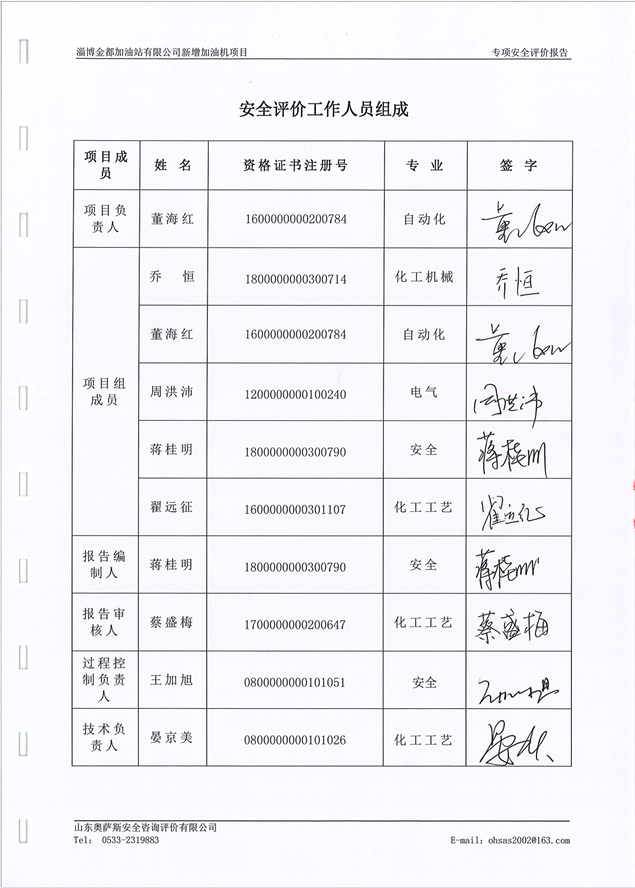 淄博金都加油站有限公司新增加油机项目 专项安全评价报告
安全评价工作人员组成
项目成员 姓 名 资格证书注册号 专 业 签 字
项目负责人 董海红 1600000000200784 自动化
项目组成员 乔 恒 1800000000300714 化工机械 乔恒
董海红 1600000000200784 自动化
周洪沛 1200000000100240 电气 周洪沛
蒋桂明 1800000000300790 安全 蒋桂明
翟远征 1600000000301107 化工工艺 翟远征
报告编制人 蒋桂明 1800000000300790 安全 蒋桂明
报告审核人 蔡盛梅 1700000000200647 化工工艺 蔡盛梅
过程控制负责人 王加旭 0800000000101051 安全
技术负责人 晏京美 0800000000101026 化工工艺
山东奥萨斯安全咨询评价有限公司
Tel: 0533-2319883 E-mail: ohsas2002@163.com